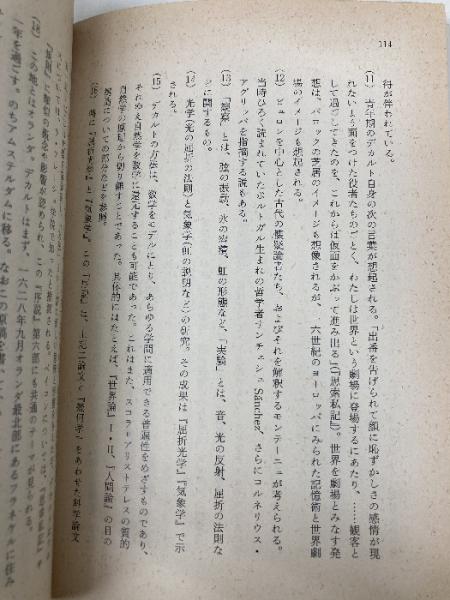 114
得が伴われている。
(11) 青年期のデカルト自身の次の言葉が想起される。「出番を告げられて顔に恥ずかしさの感情が現
れないよう面をつけた役者たちのごとく、わたしは世界という劇場に登場するにあたり、……観客と
して過ごしてきたのを、これからは仮面をかぶって進み出る」(『思索私記』)。世界を劇場とみなす発
想は、バロック芝居のイメージも想像されるが、一六世紀のヨーロッパにみられた記憶術と世界劇
場のイメージも想起される。
(12) ピュロンを中心とした古代の懐疑論者たち、およびそれを解釈するモンテーニュが考えられる。
当時ひろく読まれていたポルトガル生まれの哲学者サンチェシュ Sánchez、さらにコルネリウス・
アグリッパを指摘する説もある。
(13) 「観察」とは、弦の振動、氷の溶解、虹の形態など、「実験」とは、音、光の反射、屈折の法則な
どに関するもの。
(14) 光学(光の屈折の法則)と気象学(虹の説明など)の研究。その成果は『屈折光学』『気象学』で示
される。
(15) デカルトの方法は、数学をモデルにとり、あらゆる学問に適用できる普遍性をめざすものであり、
それゆえ自然学を数学に還元することも可能であった。これはまた、スコラ=アリストテレスの質的
自然学の原理から切り離すことであった。具体的にはたとえば、『世界論』I・II、『人間論』の目の
構造についての部分などを参照。
(16) 特に『屈折光学』と『気象学』。この『序説』は、上記二論文と『幾何学』をあわせた科学論文
この『序説』第六部にも共通のテーマが見られる。
(18) この地とはオランダ。デカルトはまず、一六二八年九月オランダ最北部にあるフラネケルに住み
一年を過ごす。のちアムステルダムに移る。なおこの原稿を書